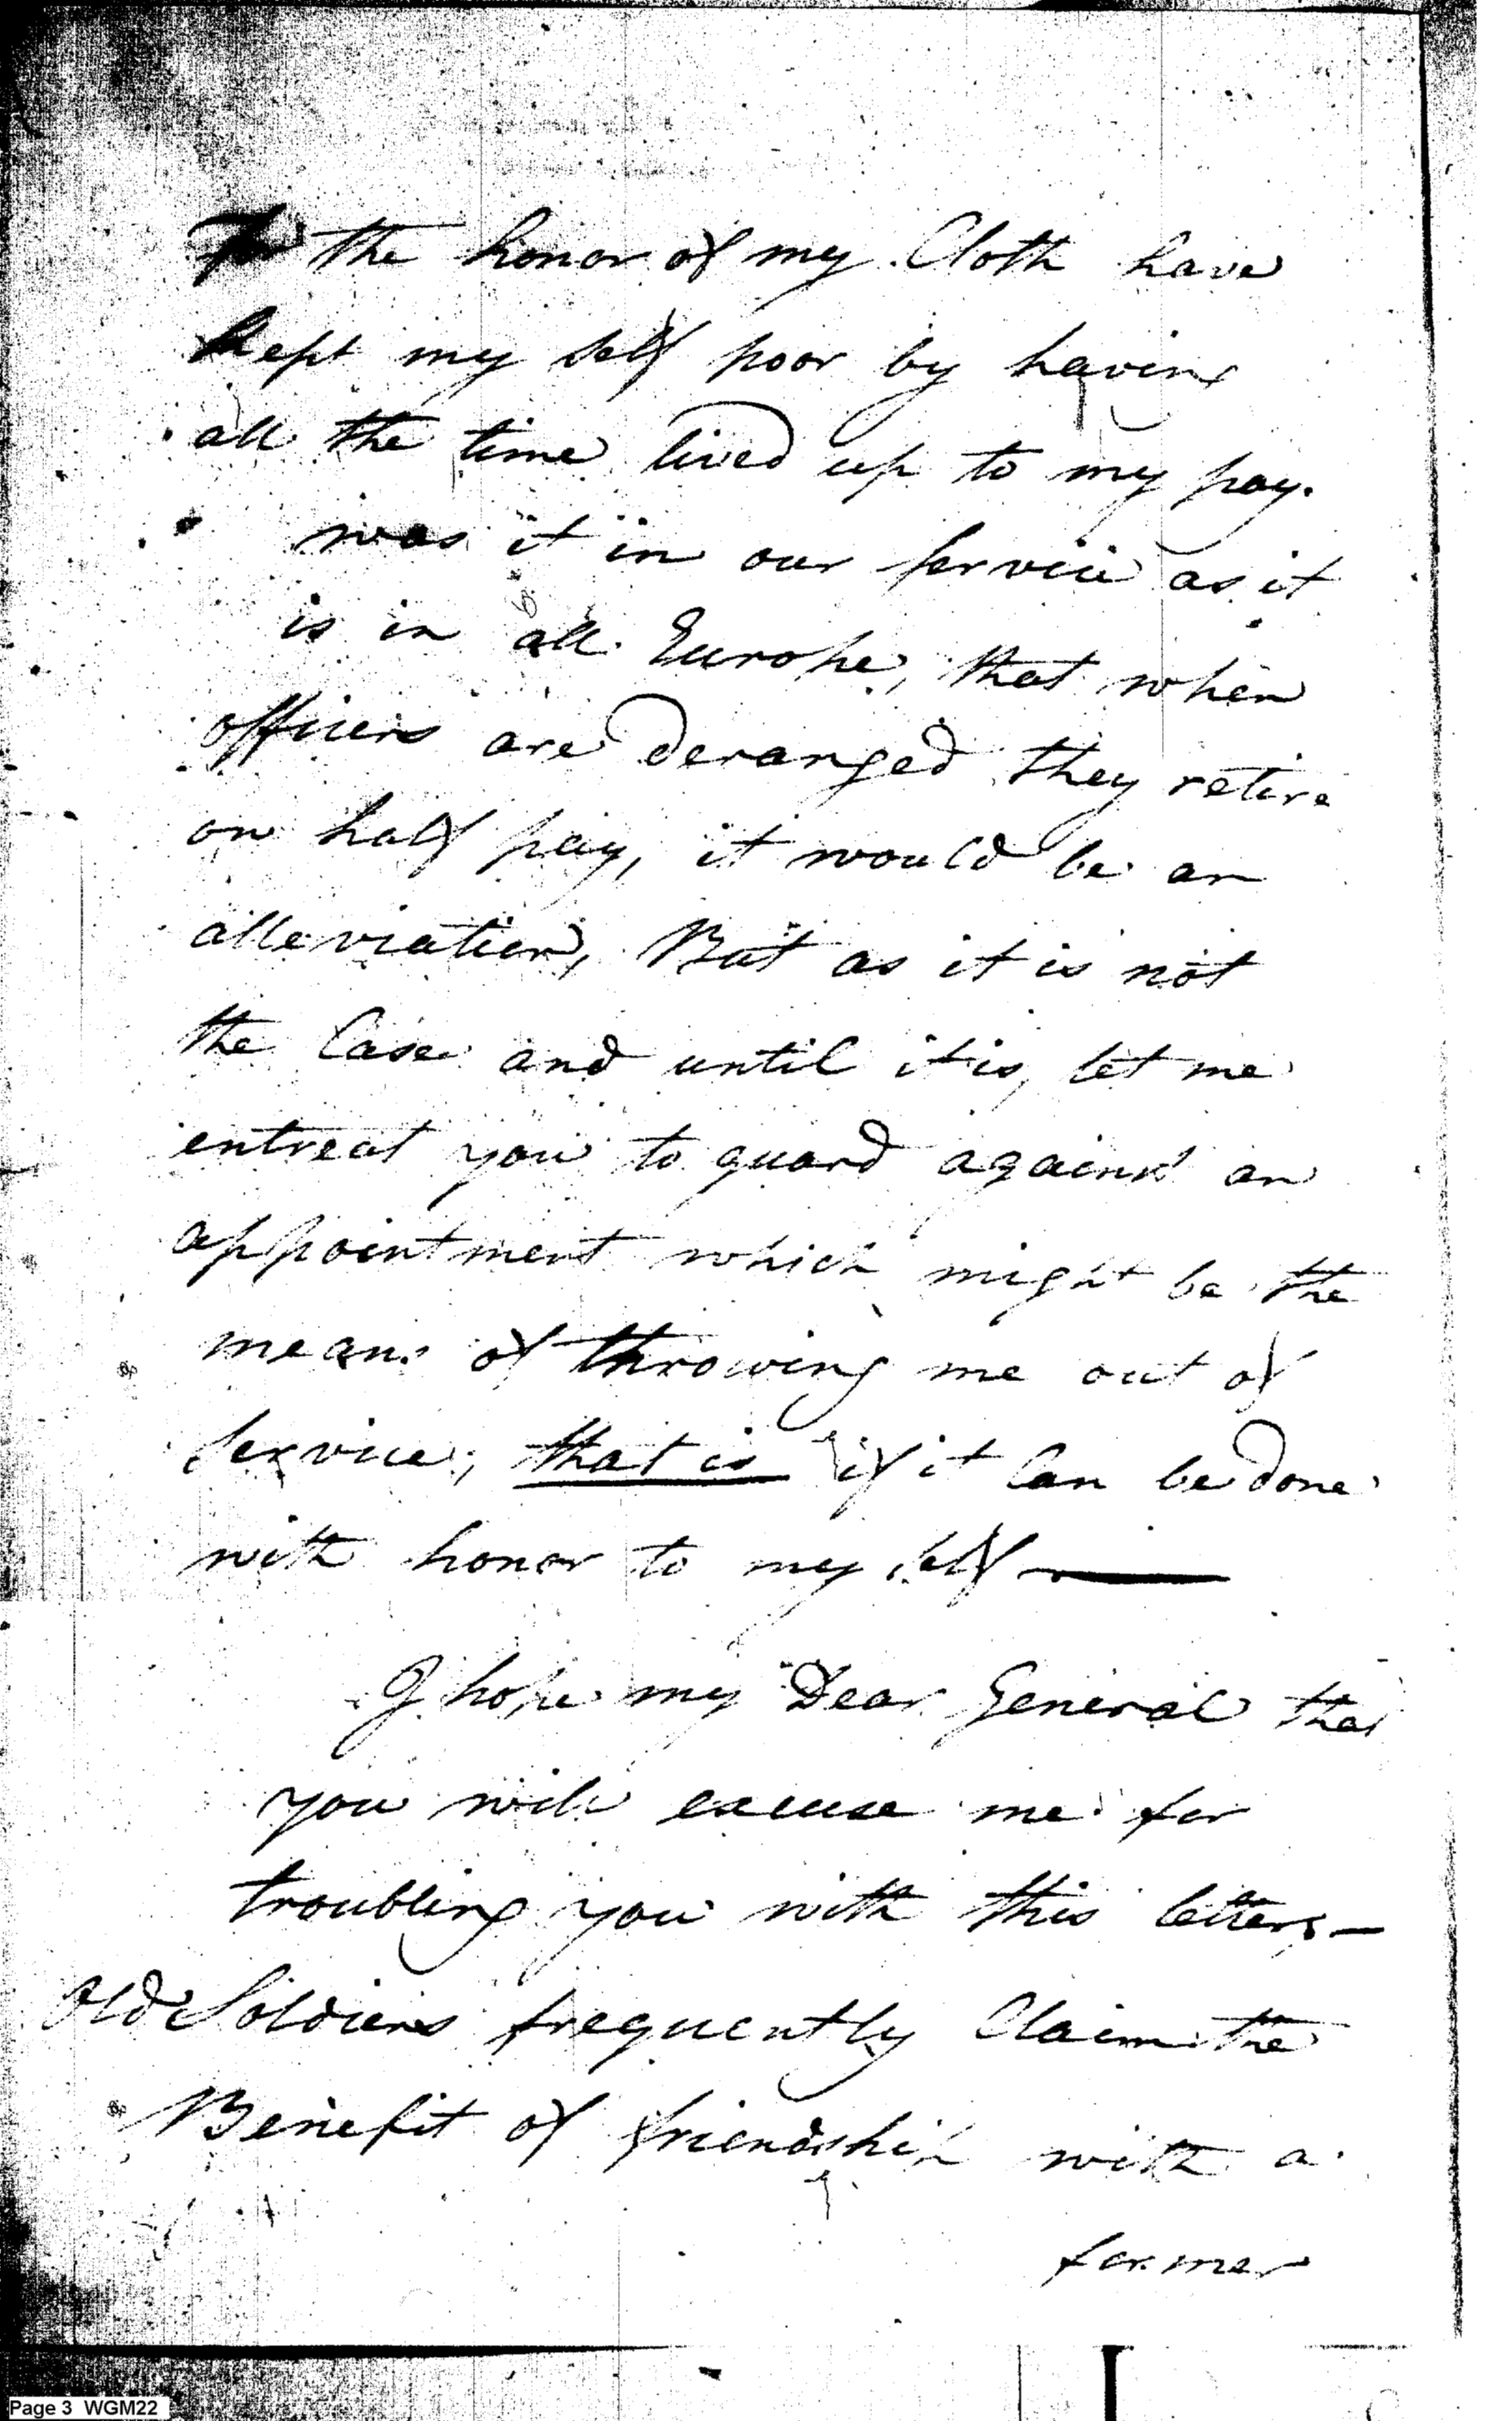 For the honor of my Cloth have
kept my self poor by having
all the time lived up to my pay.
was it in our service as it
is in all Europe, that when
officers are deranged they retire
on half pay, it would be an
alleviation, But as it is not
the Case and until it is, let me
entreat you to guard against an
appointment which might be the
means of throwing me out of
service; that is if it Can be done
with honor to my self —
I hope my Dear General that
you will excuse me for
troubling you with this letter, —
Old Soldiers frequently Claim the
Benefit of friendship with a
former
Page 3 WGM22